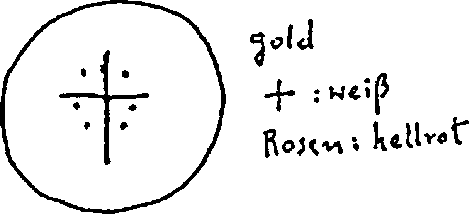 gold
+ : weiß
Rosen: hellrot